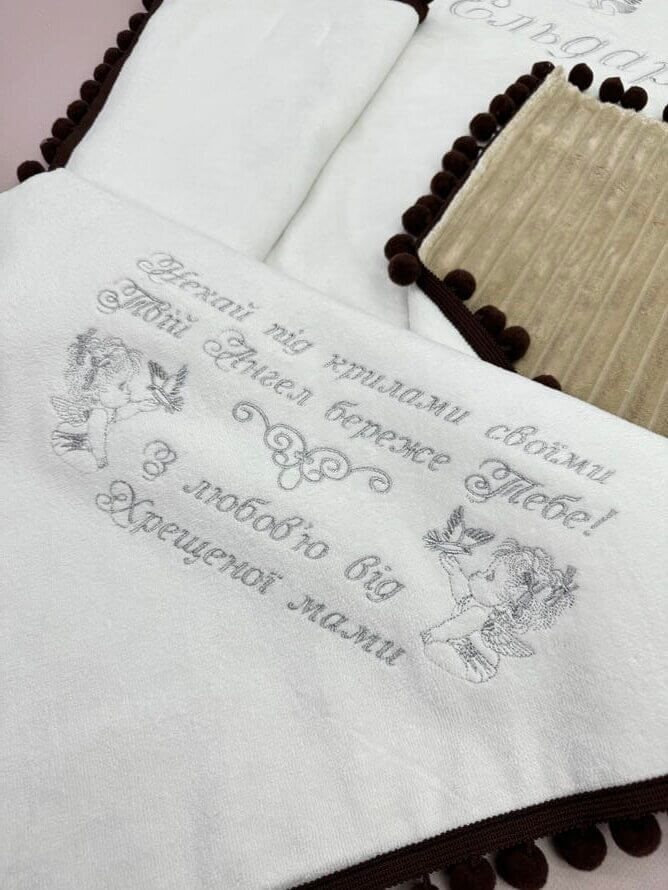 Ельдар
Нехай під крилами своїми
Твій Ангел береже Тебе!
З любов'ю від
Хрещеної мами